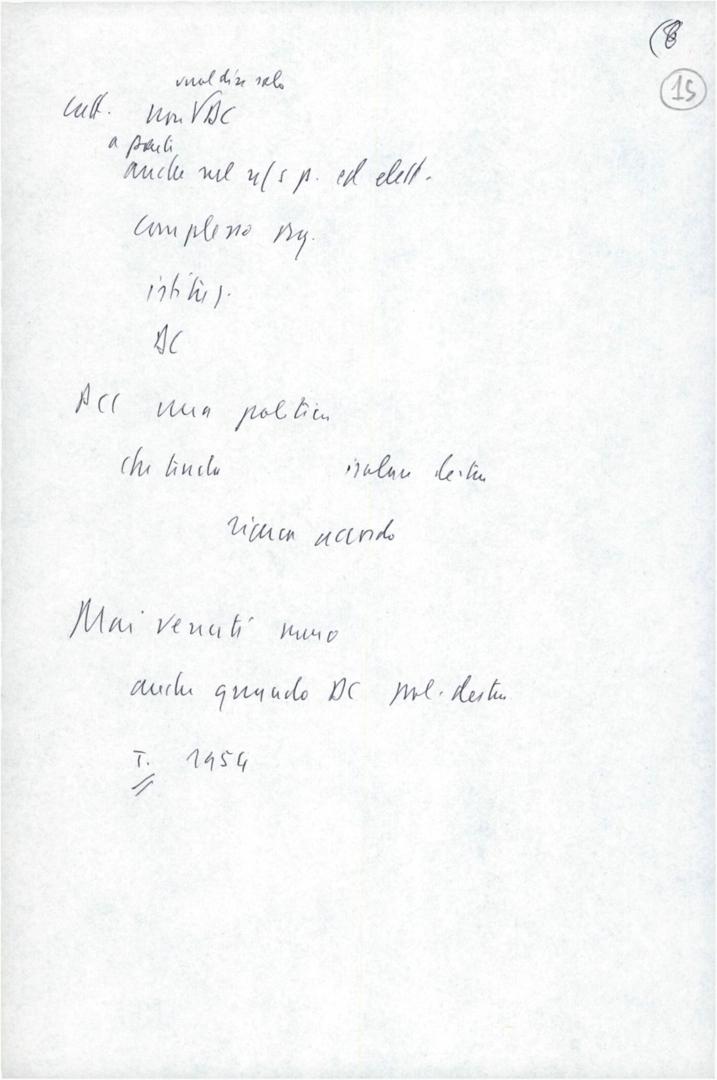 (8
15
vuol dire solo
catt. non V DC
a parti
anche sul n/s p. ed elett.
complesso org.
istituz.
DC
Acc una politica
che tenda isolare destra
ricerca accordo
Mai venuti meno
anche quando DC pol. destra
T. 1954